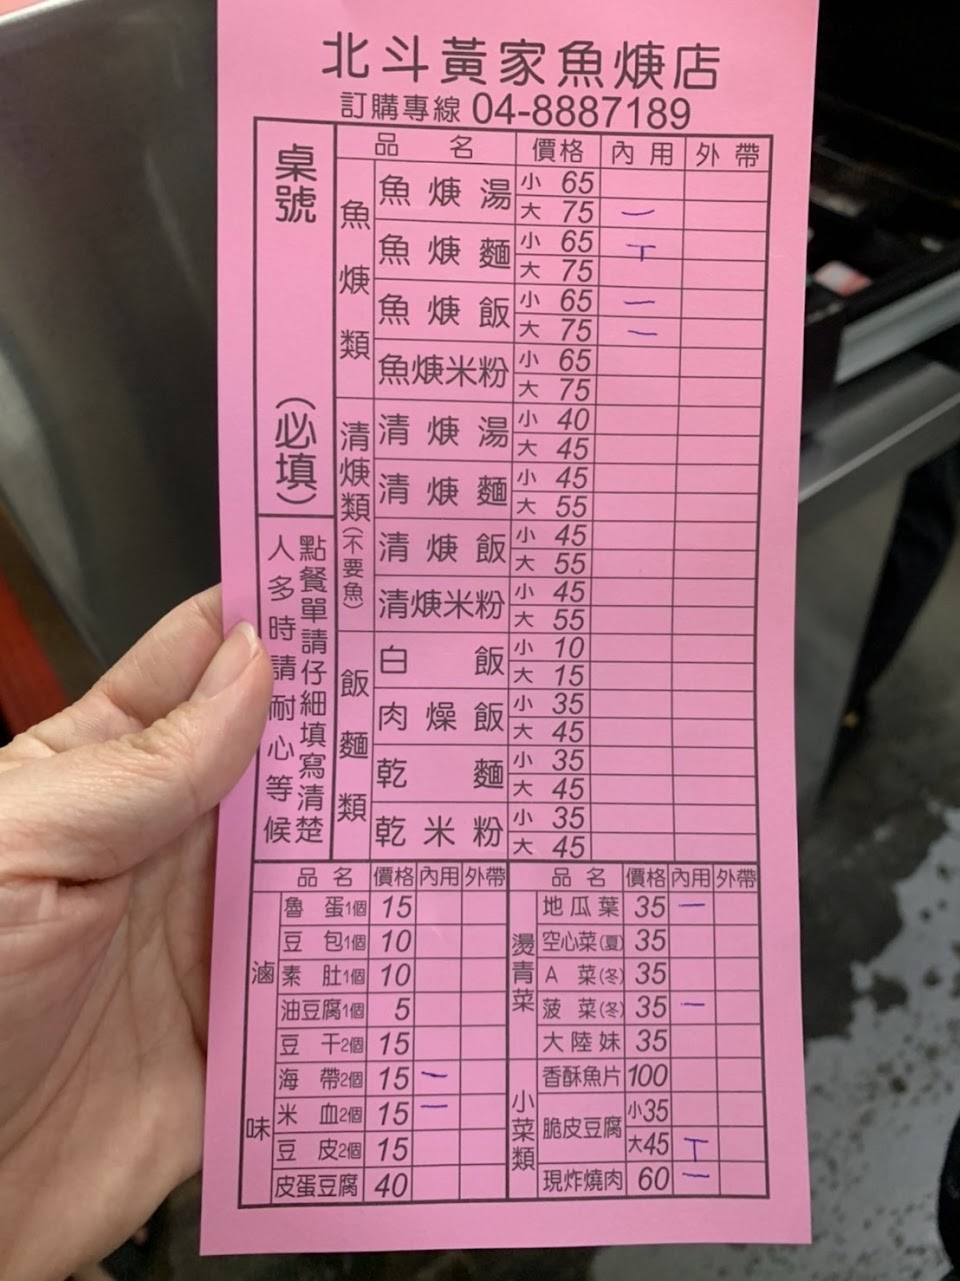 北斗黃家魚焿店
訂購專線 04-8887189
桌號（必填）
點餐單請仔細填寫清楚
人多時請耐心等候
品名 價格 內用 外帶
魚焿類
魚焿湯 小 65
大 75 一
魚焿麵 小 65 丅
大 75
魚焿飯 小 65 一
大 75 一
魚焿米粉 小 65
大 75
清焿類(不要魚)
清焿湯 小 40
大 45
清焿麵 小 45
大 55
清焿飯 小 45
大 55
清焿米粉 小 45
大 55
飯麵類
白飯 小 10
大 15
肉燥飯 小 35
大 45
乾麵 小 35
大 45
乾米粉 小 35
大 45
品名 價格 內用 外帶
滷味
魯蛋1個 15
豆包1個 10
素肚1個 10
油豆腐1個 5
豆干2個 15
海帶2個 15 一
米血2個 15 一
豆皮2個 15
皮蛋豆腐 40
品名 價格 內用 外帶
燙青菜
地瓜葉 35 一
空心菜(夏) 35
A菜(冬) 35
菠菜(冬) 35 一
大陸妹 35
小菜類
香酥魚片 100
脆皮豆腐 小35
大45 丅
現炸燒肉 60 一